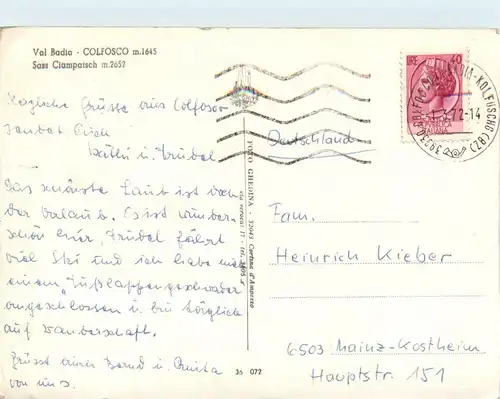 Val Badia - COLFOSCO m.1645
Sass Ciampatsch m.2652
Herzliche Grüsse aus Colfosco
sendet Euch
Käthi u. Trudel
Das schönste Laub ist doch
der Urlaub. Es ist wunder-
schön hier, Trudel fährt
viel Ski und ich habe mich
einem "Fußlappengeschwader"
angeschlossen u. bin täglich
auf Wanderschaft.
Grüsst einer Bernd u. Anita
von uns.
FOTO GHEDINA - 32043 Cortina d'Ampezzo
36 072
LIRE 40
ITALIANA
72-14
Deutschland
Fam.
Heinrich Kieber
6503 Mainz-Kostheim
Hauptstr. 151